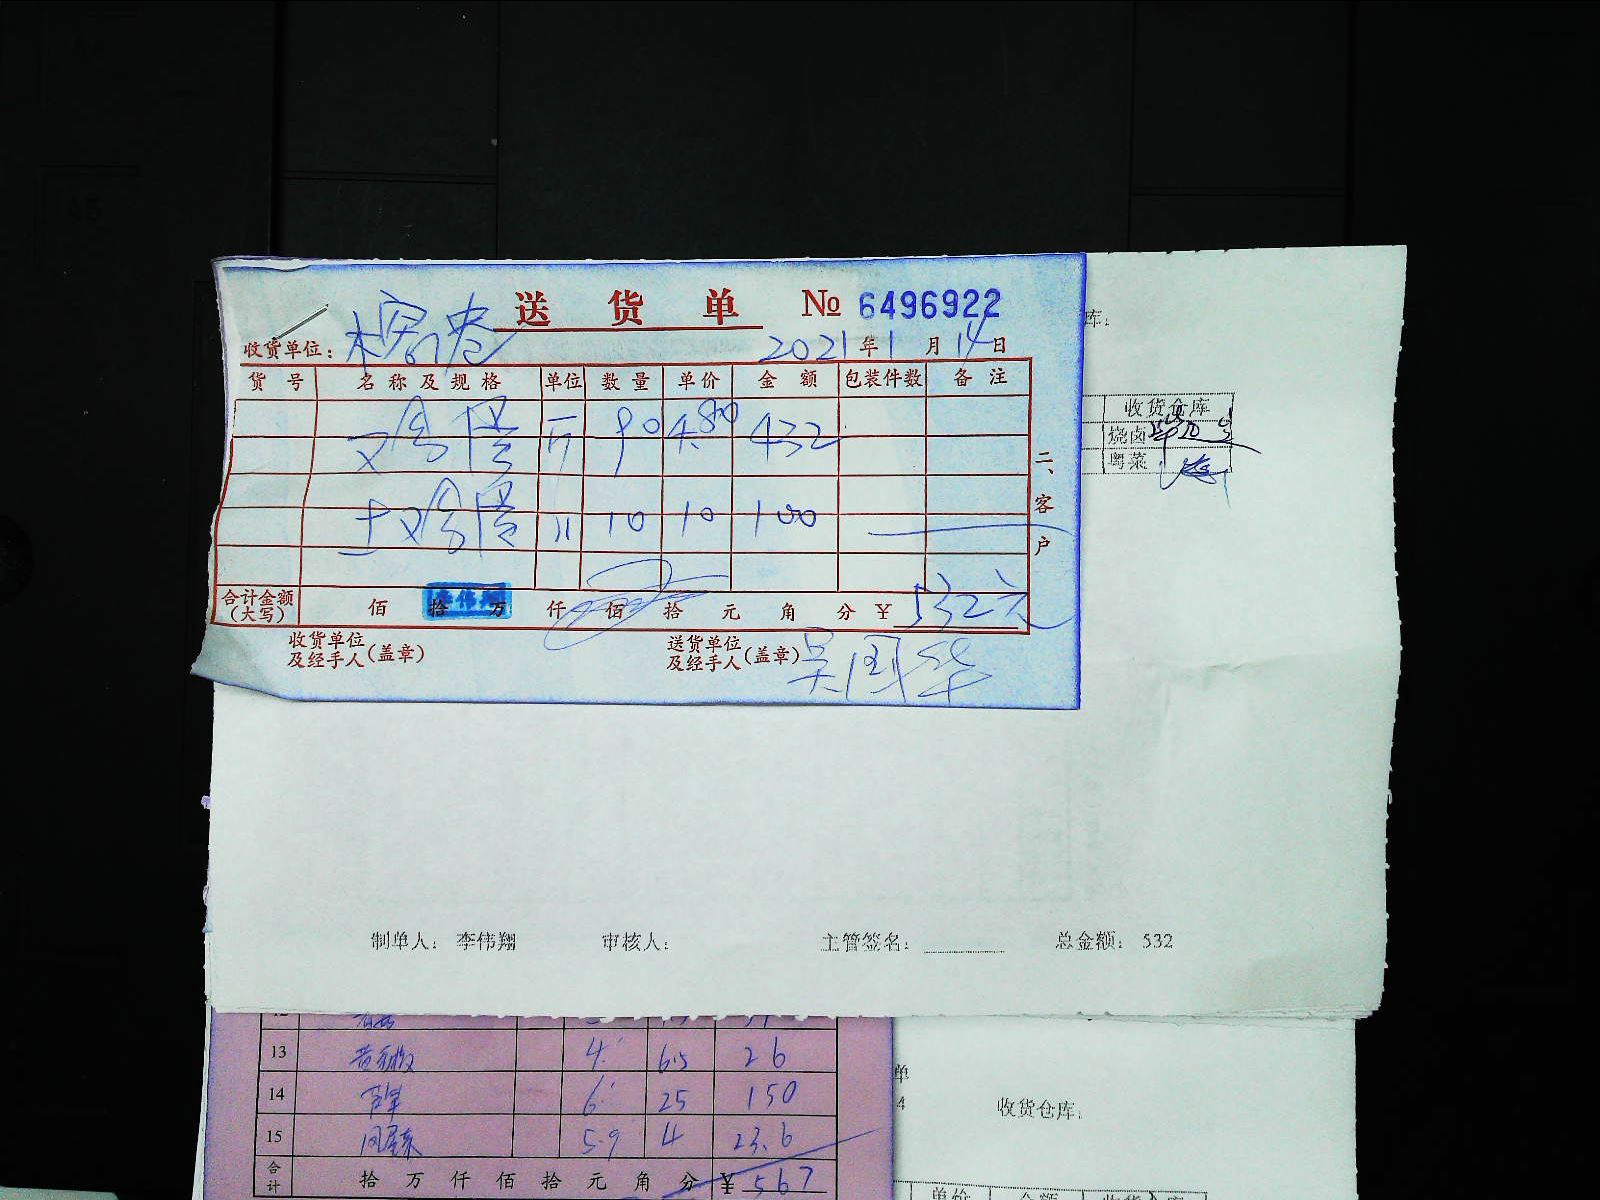 送货单 № 6496922
收货单位：榕港 2021年1月14日
货号 名称及规格 单位 数量 单价 金额 包装件数 备注
鸡蛋 斤 90 4.80 432
土鸡蛋 11 10 10 100
合计金额(大写) 佰 拾 万 仟 佰 拾 元 角 分 ￥ 532元
收货单位及经手人(盖章) 送货单位及经手人(盖章) 吴国华
二、客户
库：
收货仓库
烧卤
粤菜
制单人： 李伟翔 审核人： 主管签名： 总金额： 532
12
13 4 6.5 26
14 6 25 150
15 5.9 4 23.6
合计 拾 万 仟 佰 拾 元 角 分 ￥ 567
单
4
收货仓库：
单价 金额 收货仓库